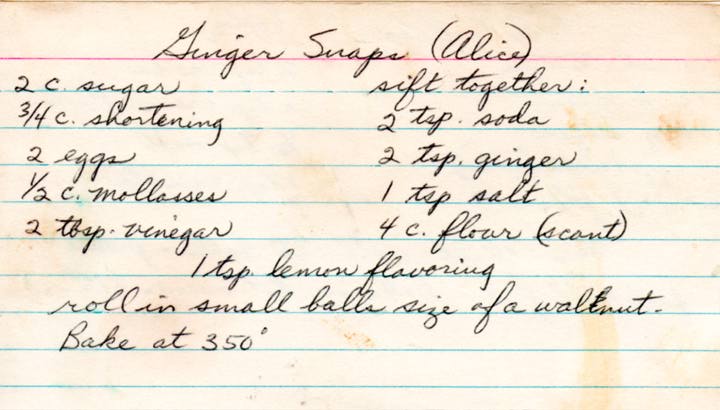 Ginger Snaps (Alice)
2 c. sugar sift together:
3/4 c. shortening 2 tsp. soda
2 eggs 2 tsp. ginger
1/2 c. mollasses 1 tsp salt
2 tbsp. vinegar 4 c. flour (scant)
1 tsp. lemon flavoring
roll in small balls size of a walnut.
Bake at 350°